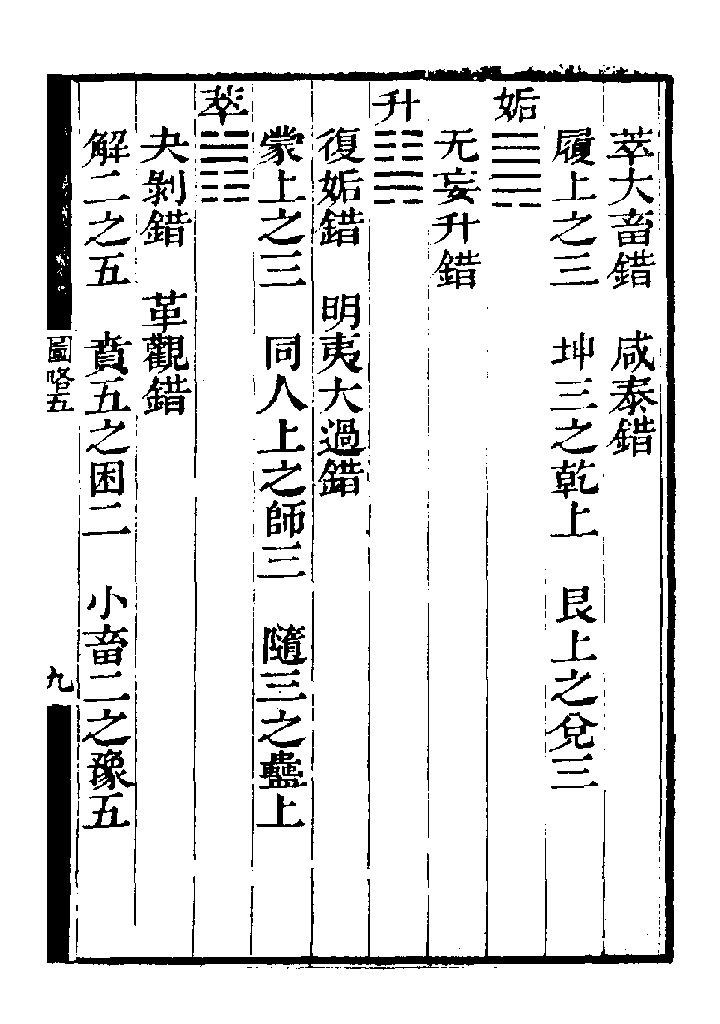 萃大畜錯　咸泰錯
履上之三　坤三之乾上　艮上之兌三
姤䷫
无妄升錯
升䷭
復姤錯　明夷大過錯
蒙上之三　同人上之師三　隨三之蠱上
萃䷬
夬剝錯　革觀錯
解二之五　賁五之困二　小畜二之豫五
圖略五
九